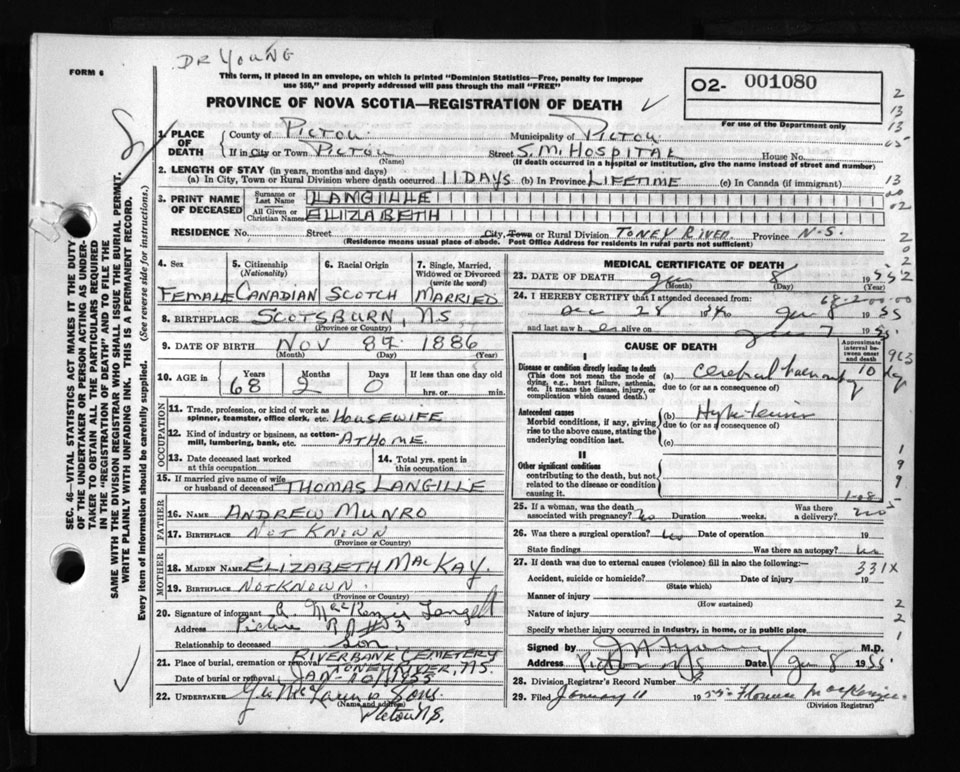 DR YOUNG
FORM 6
This form, if placed in an envelope, on which is printed "Dominion Statistics—Free, penalty for improper
use $50," and properly addressed will pass through the mail "FREE"
O2- 001080
For use of the Department only
PROVINCE OF NOVA SCOTIA—REGISTRATION OF DEATH
SEC. 46—VITAL STATISTICS ACT MAKES IT THE DUTY
OF THE UNDERTAKER OR PERSON ACTING AS UNDER-
TAKER TO OBTAIN ALL THE PARTICULARS REQUIRED
IN THE "REGISTRATION OF DEATH" AND TO FILE THE
SAME WITH THE DIVISION REGISTRAR WHO SHALL ISSUE THE BURIAL PERMIT.
WRITE PLAINLY WITH UNFADING INK. THIS IS A PERMANENT RECORD.
Every item of information should be carefully supplied. (See reverse side for instructions.)
1. PLACE OF DEATH
County of PICTOU Municipality of PICTOU
If in City or Town PICTOU Street S.M. HOSPITAL House No.
(Name) (If death occurred in a hospital or institution, give the name instead of street and number)
2. LENGTH OF STAY (in years, months and days)
(a) In City, Town or Rural Division where death occurred 11 DAYS (b) In Province LIFETIME (c) In Canada (if immigrant)
3. PRINT NAME OF DECEASED
Surname or Last Name LANGILLE
All Given or Christian Names ELIZABETH
RESIDENCE No. Street City, Town or Rural Division TONEY RIVER Province N.S.
(Residence means usual place of abode. Post Office Address for residents in rural parts not sufficient)
4. Sex 5. Citizenship (Nationality) 6. Racial Origin 7. Single, Married, Widowed or Divorced (write the word)
FEMALE CANADIAN SCOTCH MARRIED
8. BIRTHPLACE SCOTSBURN, NS
(Province or Country)
9. DATE OF BIRTH NOV 8TH 1886
(Month) (Day) (Year)
10. AGE IN Years Months Days If less than one day old
68 2 0 hrs. or min.
OCCUPATION
11. Trade, profession, or kind of work as
spinner, teamster, office clerk, etc. HOUSEWIFE
12. Kind of industry or business, as cotton-
mill, lumbering, bank, etc. AT HOME
13. Date deceased last worked
at this occupation
14. Total yrs. spent in
this occupation
15. If married give name of wife
or husband of deceased THOMAS LANGILLE
FATHER
16. NAME ANDREW MUNRO
17. BIRTHPLACE NOT KNOWN
(Province or Country)
MOTHER
18. MAIDEN NAME ELIZABETH MACKAY.
19. BIRTHPLACE NOT KNOWN.
(Province or Country)
20. Signature of informant MacKenzie
Address Pictou RR#3
Relationship to deceased Son
21. Place of burial, cremation or removal RIVERBANK CEMETERY
TONEY RIVER, NS
Date of burial or removal JAN-10/1955
22. UNDERTAKER McLaren & Sons
(Name and address)
Pictou N.S.
MEDICAL CERTIFICATE OF DEATH
23. DATE OF DEATH Jan 8 1955
(Month) (Day)
24. I HEREBY CERTIFY that I attended deceased from:
Dec 28 1954 to Jan 8 1955
and last saw her alive on Jan 7 1955
CAUSE OF DEATH
Approximate interval between onset and death
I
Disease or condition directly leading to death
(This does not mean the mode of
dying, e.g., heart failure, asthenia,
etc. It means the disease, injury, or
complication which caused death.)
(a) Cerebral haemorrhage 10 days
due to (or as a consequence of)
Antecedent causes
Morbid conditions, if any, giving
rise to the above cause, stating the
underlying condition last.
(b) Hypertension
due to (or as a consequence of)
(c)
II
Other significant conditions
contributing to the death, but not
related to the disease or condition
causing it.
25. If a woman, was the death
associated with pregnancy? No Duration weeks. Was there
a delivery? no
26. Was there a surgical operation? no Date of operation 19
State findings Was there an autopsy? no
27. If death was due to external causes (violence) fill in also the following:— 331X
Accident, suicide or homicide? Date of injury 19
(State which)
Manner of injury
(How sustained)
Nature of injury
Specify whether injury occurred in industry, in home, or in public place
Signed by Young M.D.
Address Pictou NS Date Jan 8 1955.
28. Division Registrar's Record Number
29. Filed January 11 1955 Florence MacKenzie
(Division Registrar)